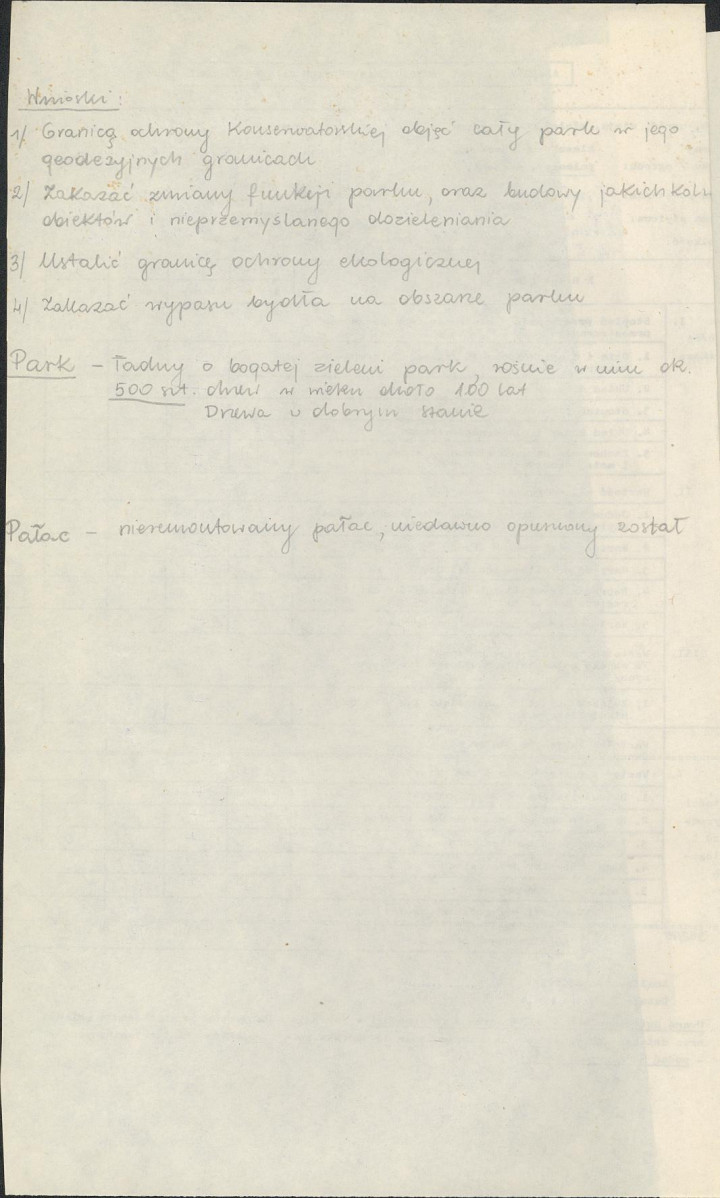 Wnioski:
1/ Granicą ochrony Konserwatorskiej objąć cały park w jego
geodezyjnych granicach
2/ Zakazać zmiany funkcji parku, oraz budowy jakichkolw
obiektów i nieprzemyślanego dozieleniania
3/ Ustalić granicę ochrony ekologicznej
4/ Zakazać wypasu bydła na obszarze parku
Park – Ładny o bogatej zieleni park, rośnie w nim ok.
500 szt. drzew w wieku około 100 lat
Drzewa w dobrym stanie
Pałac – nieremontowany pałac, niedawno opuszczony został